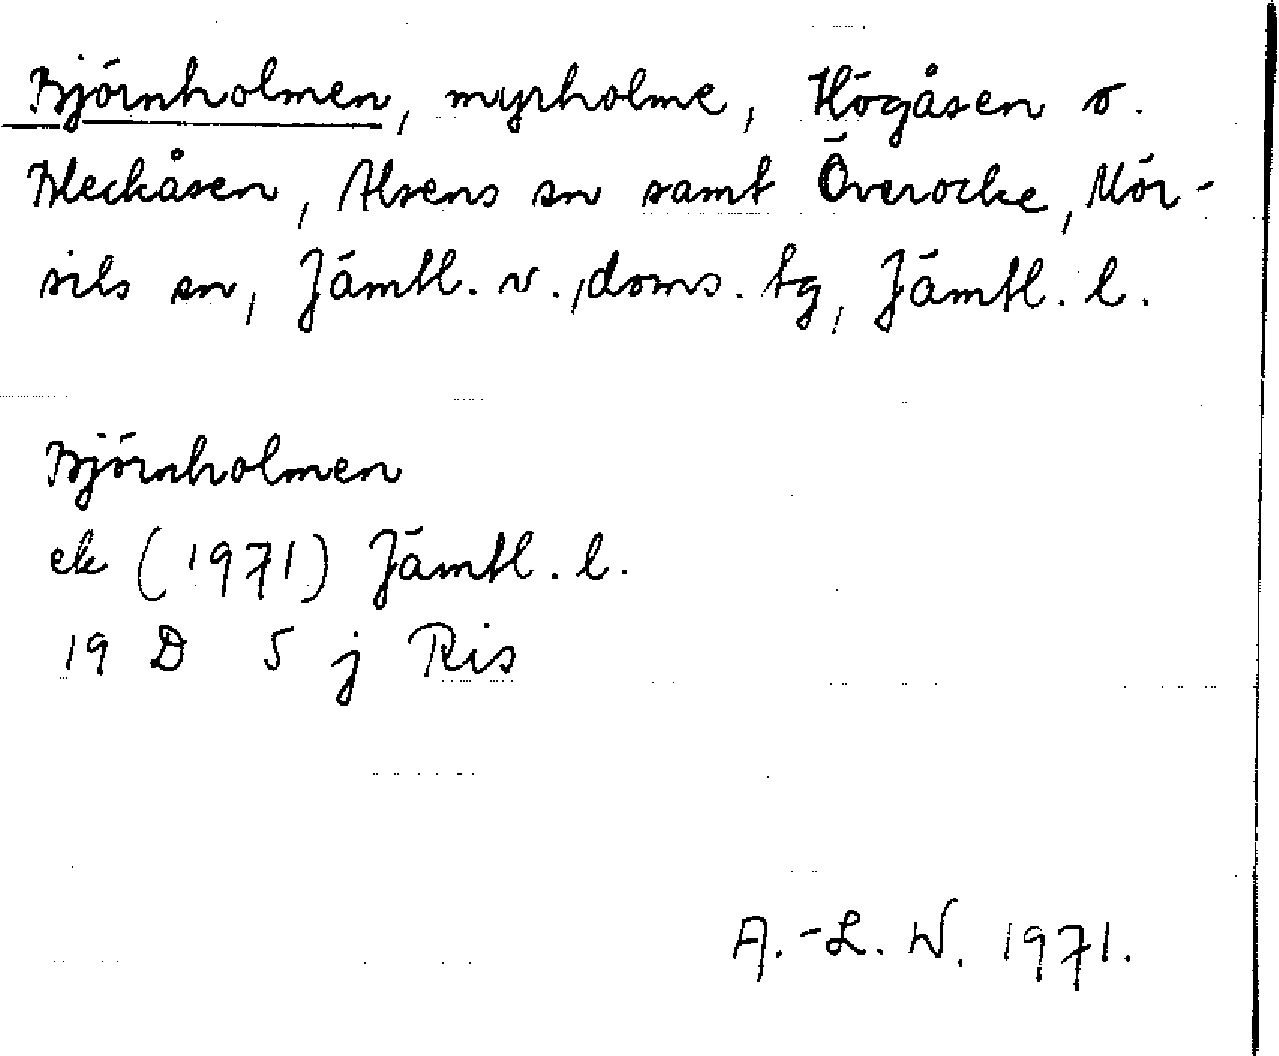 Björnholmen, myrholme, Högåsen o.
Bleckåsen, Alsens sn samt Överocke, Mör-
sils sn, Jämtl. v., doms. tg, Jämtl. l.
Björnholmen
ek (1971) Jämtl. l.
19 D 5 j Ris
A.-L. W. 1971.